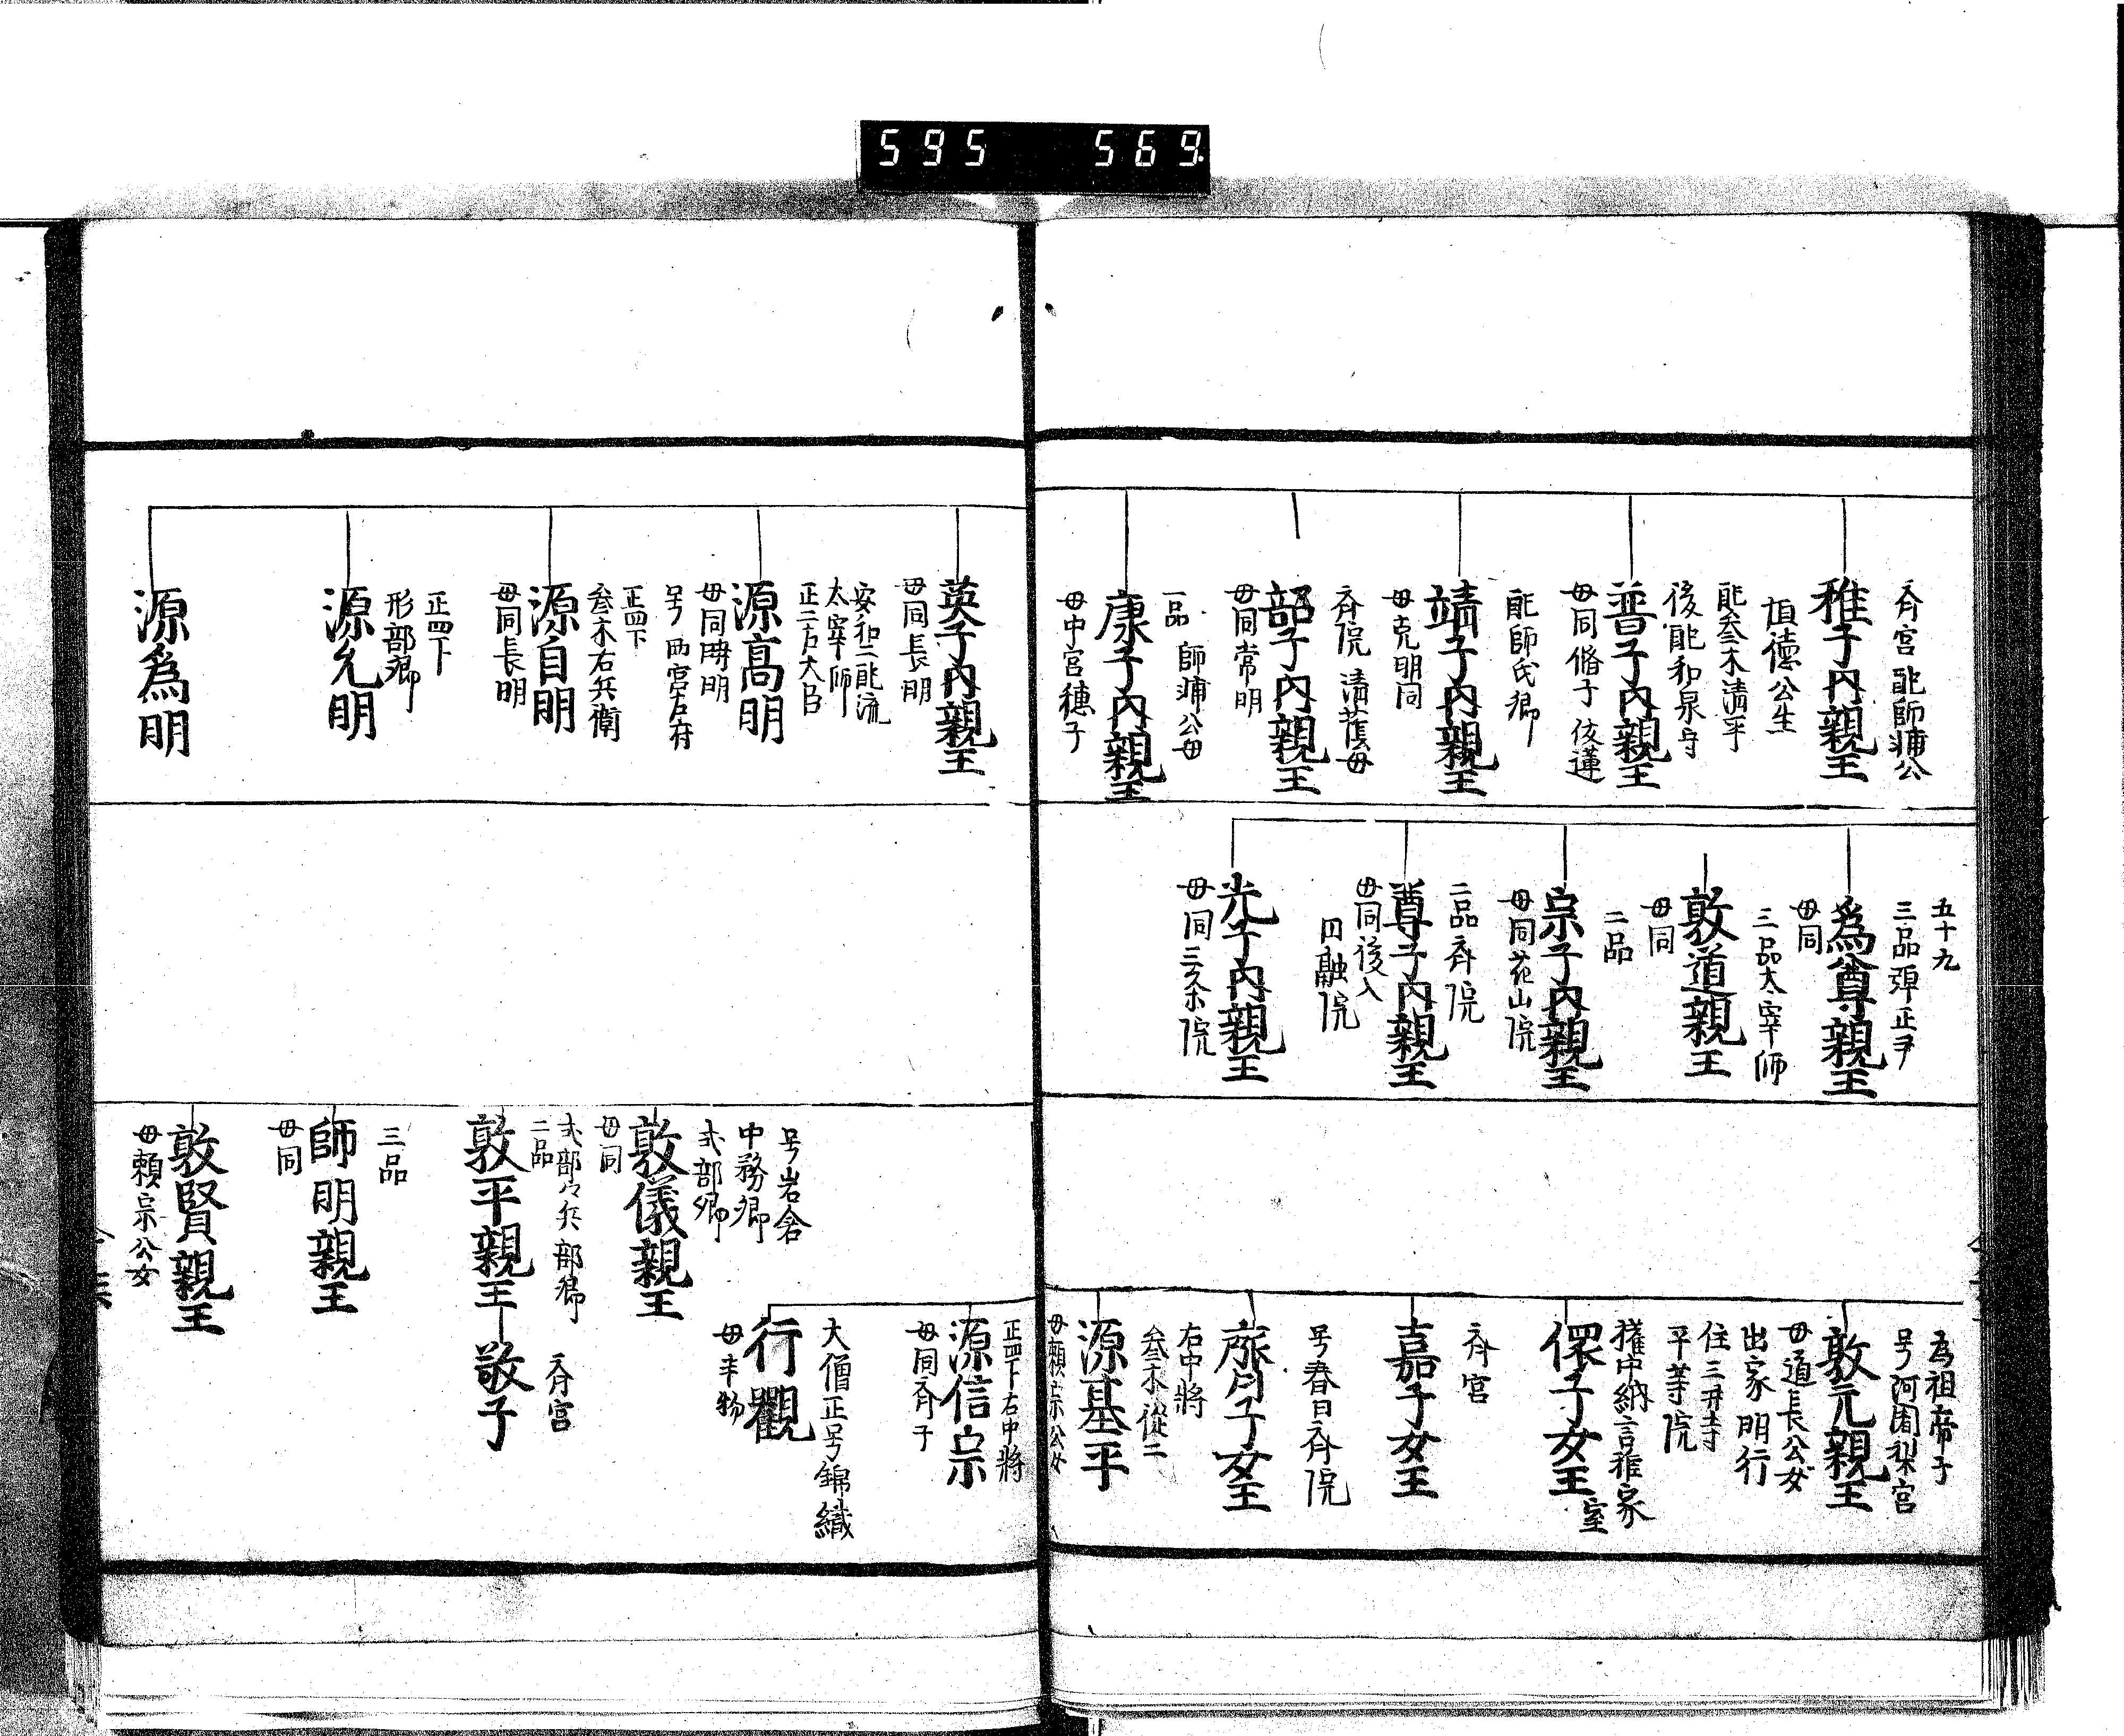 595 569
斉宮配師輔公
稚子内親王
恒徳公生
配叅木清平
後配和泉守
普子内親王
母同脩子
配師氏卿
靖子内親王
母克明同
斉院清蔭母
韶子内親王
母同常明
一品 師輔公母
康子内親王
母中宮穏子
五十九
三品弾正尹
為尊親王
母同
三品太宰師
敦道親王
母同
二品
宗子内親王
母同花山院
二品斉院
尊子内親王
母同後入
円融院
光子内親王
母同三条院
為祖帝子
敦元親王
母道長公女
出家明行
住三井寺
平等院
権中納言雅家
室
儇子女王
斉宮
嘉子女王
号春日斉院
斎子女王
右中将
叅木従二
源基平
母頼宗公女
英子内親王
母同長明
安和二配流
太宰師
正二左大臣
源高明
母同時明
号西宮左府
正四下
叅木右兵衛
源自明
母同長明
正四下
形部卿
源允明
源為明
正四下右中将
源信宗
母同斉子
大僧正号錦織
行観
号岩倉
中務卿
式部卿
敦儀親王
母同
式部々兵部卿
二品
敦平親王
斉宮
敬子
三品
師明親王
母同
敦賢親王
母頼宗公女